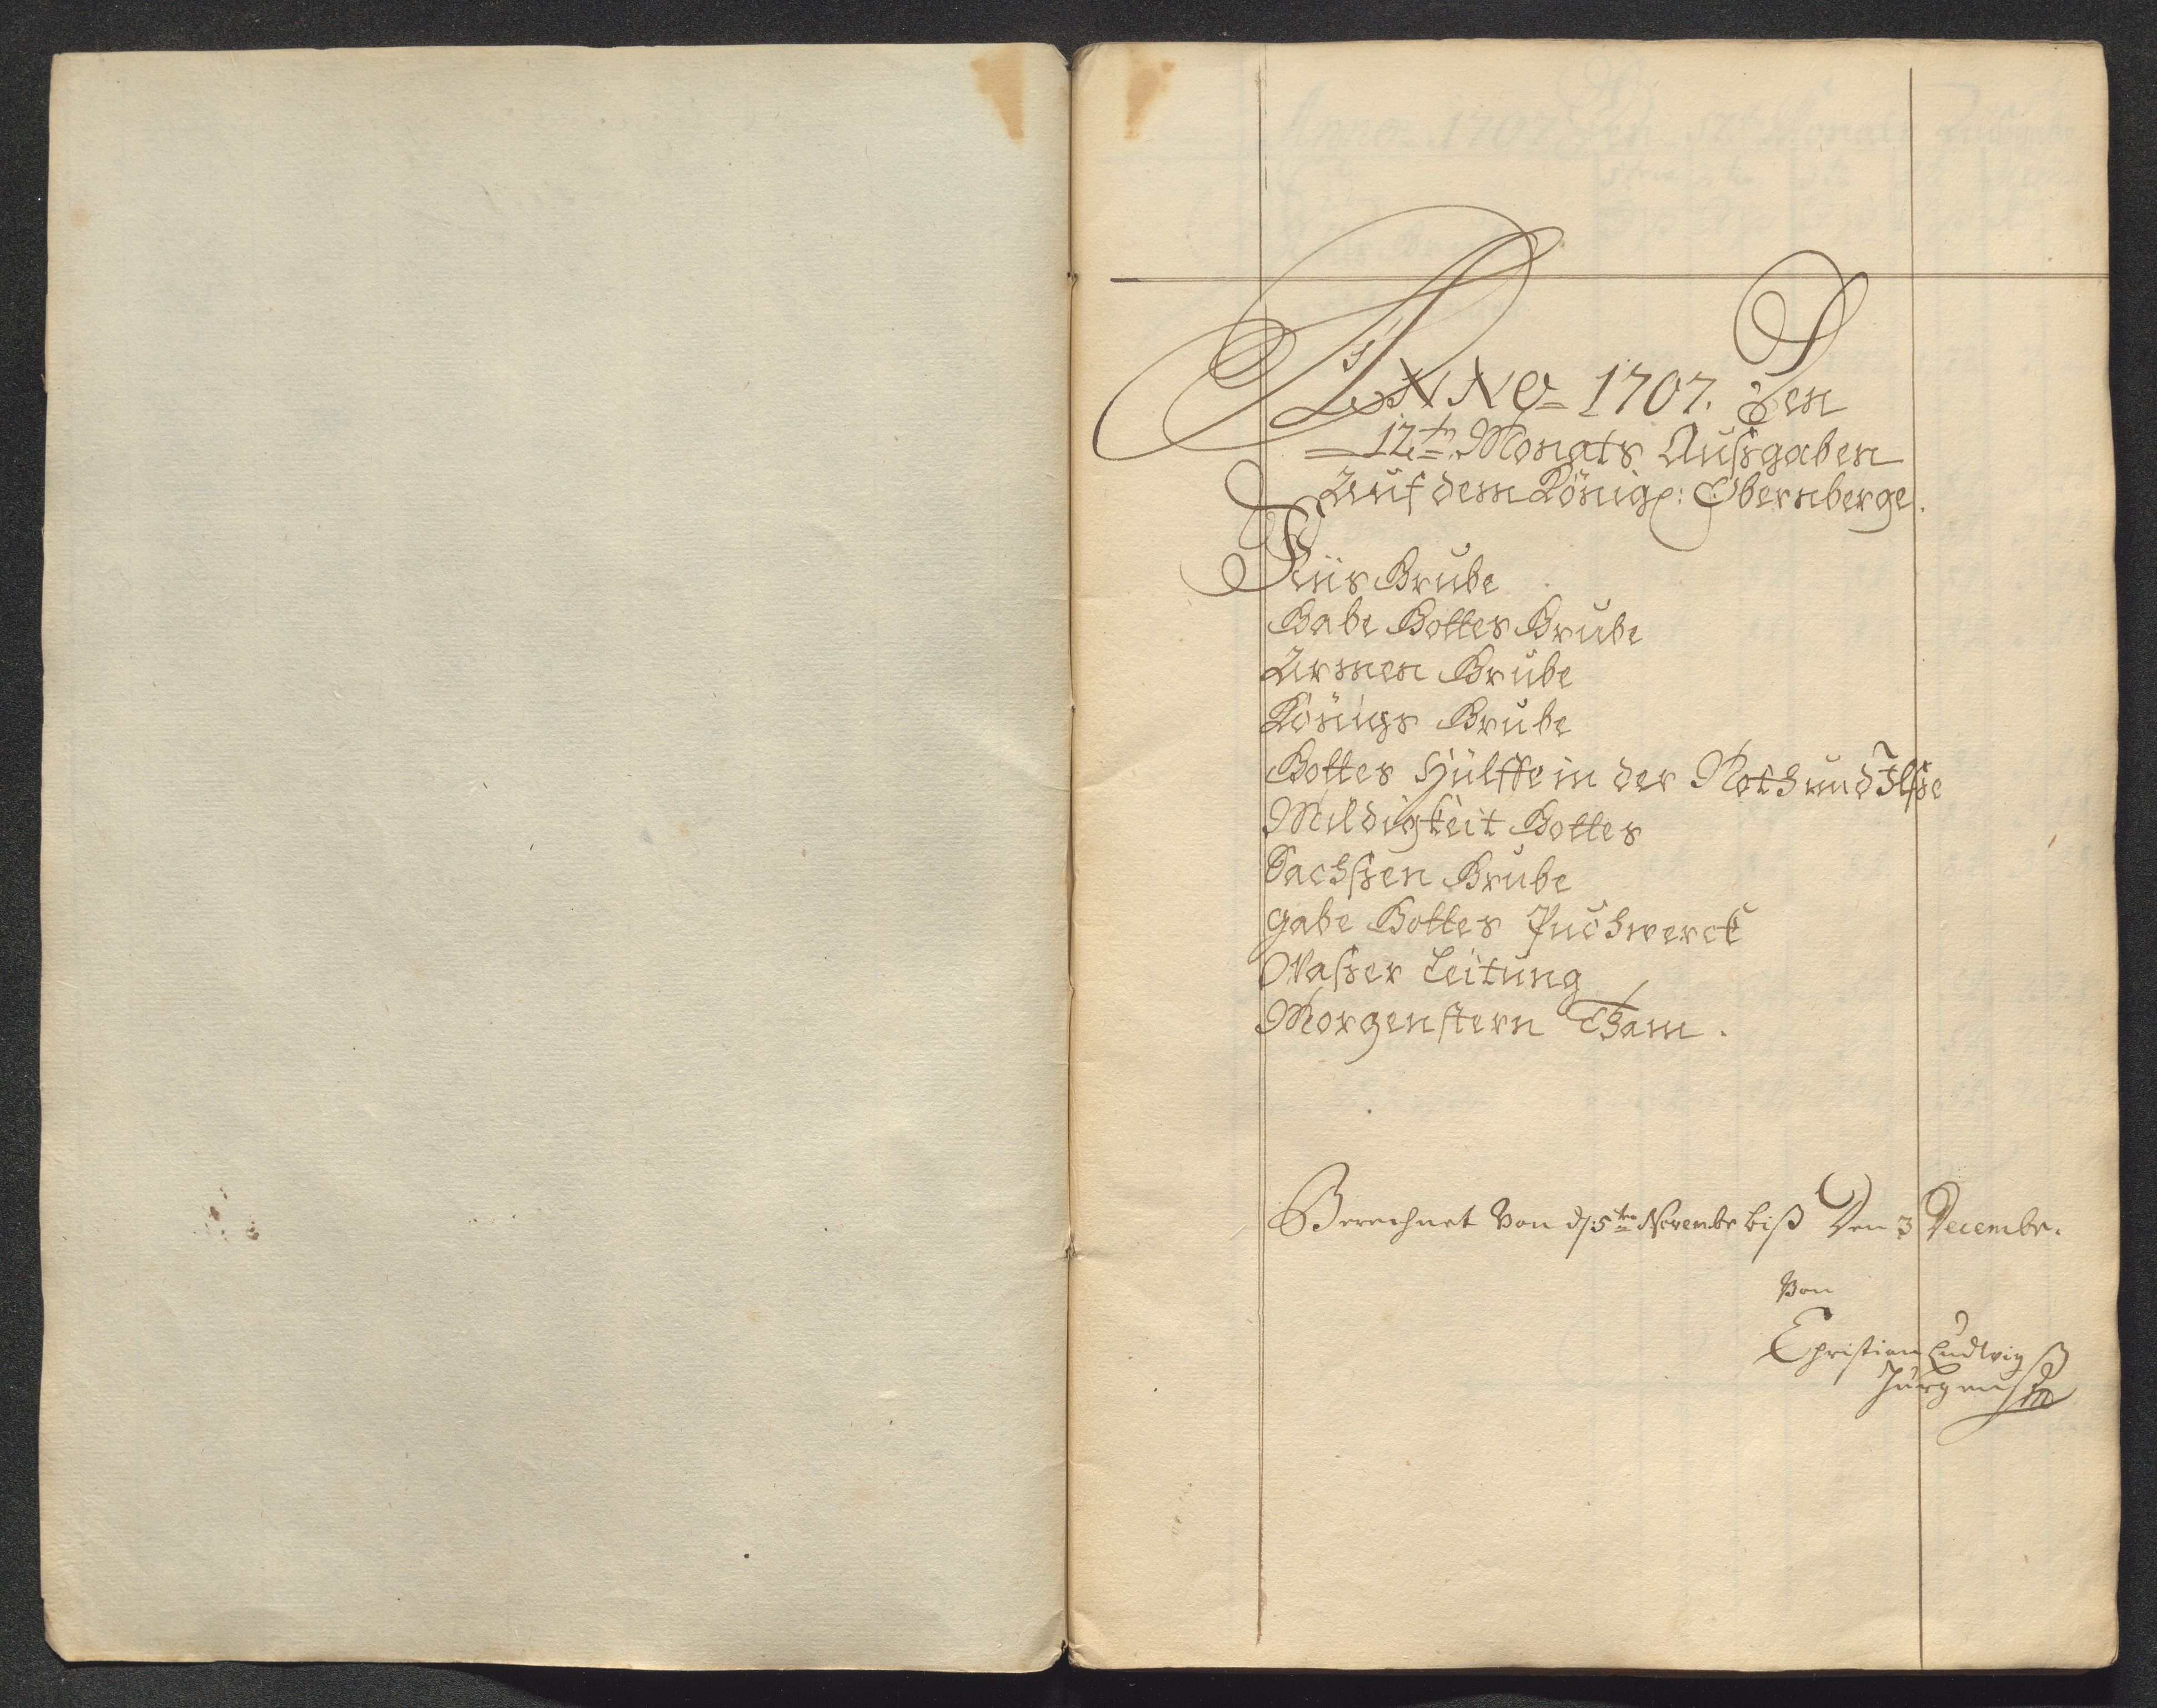 ANNO 1707. Den
12t: Monats Aussgaben
Auf dem Königl: Obernberge.
Grube
Gabe Gottes Grube
Armen Grube
Königs Grube
Gottes Hülffe in der Noth und Ilsse
Mildigkeit Gottes
Sachssen Grube
gabe Gottes Puchwerck
Wasser Leitung
Morgenstern Tham.
Berechnet Von d. 5ten Novembr biß Den 3 Decembr.
Von
Christian Ludwig
Jürgensen